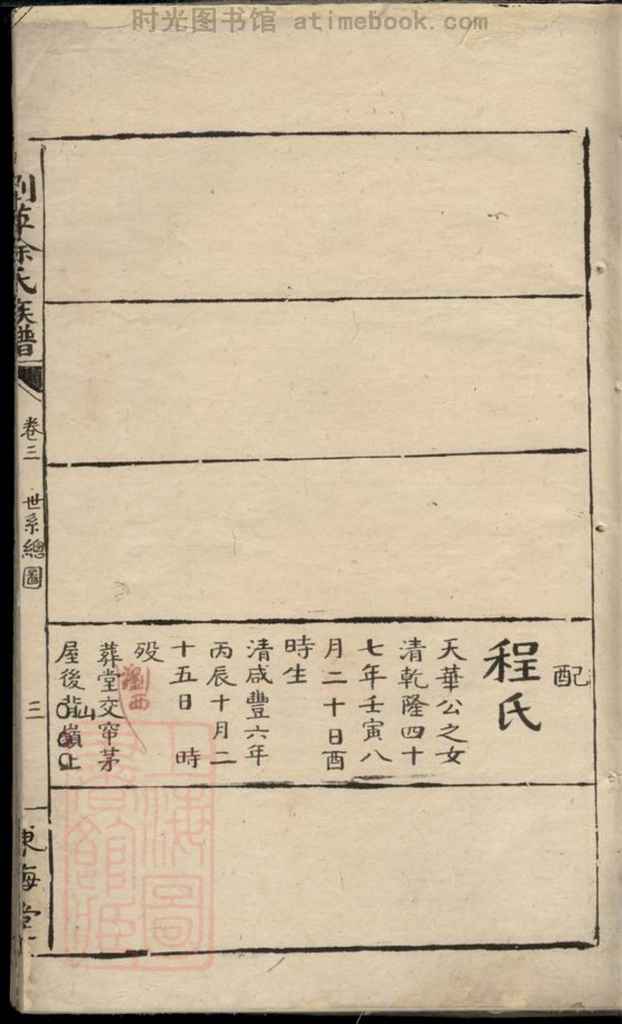 时光图书馆 atimebook.com
配
程氏
天華公之女
清乾隆四十
七年壬寅八
月二十日酉
時生
清咸豐六年
丙辰十月二
十五日 時
殁
瀏西
葬堂交窜茅
山
屋後背嶺上
氏族譜
卷三 世系總圖
三
東海堂
上海圖
書館藏